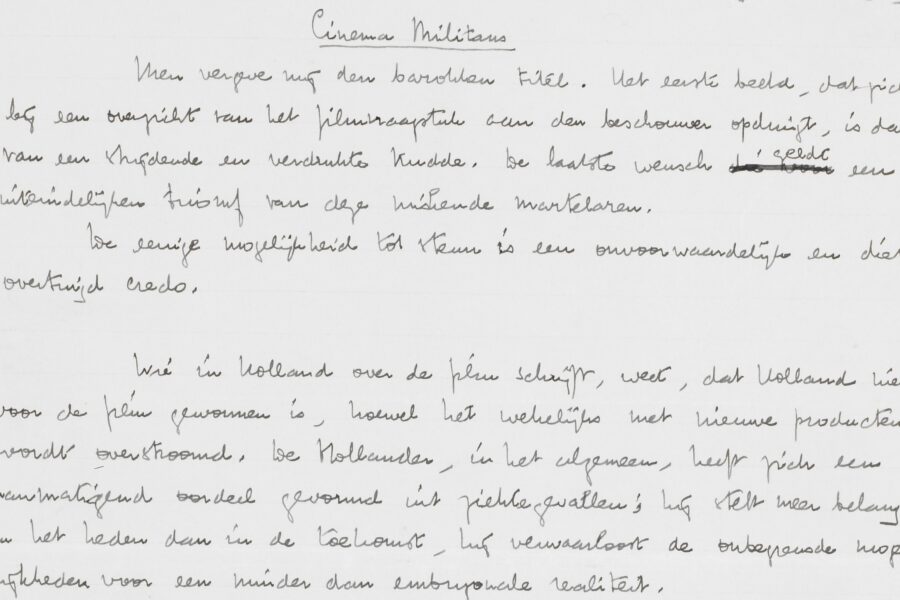 Cinema Militans
Men vergeve mij den barokken titel. Het eerste beeld, dat zich
bij een overzicht van het filmvraagstuk aan den beschouwer opdringt, is da
van een strijdende en verdrukte kudde. De laatste wensch geldt een
uiteindelijken triomf van deze martelaren.
De eenige mogelijkheid tot steun is een onvoorwaardelijk en diep
overtuigd credo.
Wie in Holland over de film schrijft, weet, dat Holland nie
voor de film gewonnen is, hoewel het wekelijks met nieuwe producten
wordt overstroomd. De Hollander, in het algemeen, heeft zich een
aanmatigend oordeel gevormd uit ziektegevallen; hij stelt meer belang
in het heden dan in de toekomst, hij verwaarloost de onbegrensde moge
lijkheden voor een minder dan embryonale realiteit.